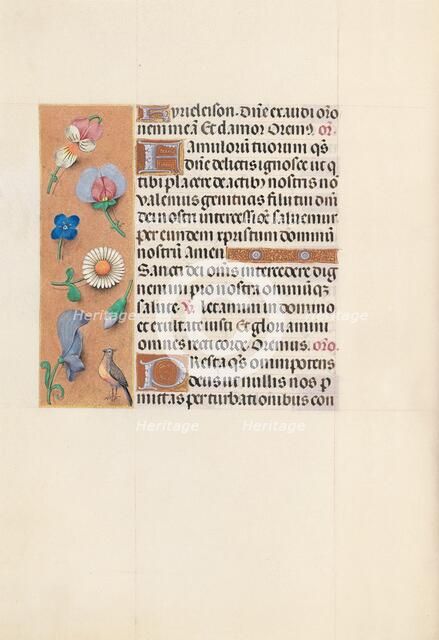 kyrieleison. Dñe exaudi orõ
nem meã Et clamor Oremꝰ. or.
Famulorum tuorum qs̃
dñe delictis ignosce ut q̃
tibi placere de actibꝰ nostris nõ
valemus genitricis filii tui dñi
dei nostri intercessiõe saluemur
per eundem xpristum dominũ
nostrũ amen
Sancti dei om̃s intercedere dig
nemini pro nostra omniũ qs̃
salute ꝟ. Letamini in domino
et exultate iusti Et gloriamini
omnes recti corde. Oremus. orõ.
Presta qs̃ omnipotens
deus ut nullis nos p
mittas perturbationibus con
Heritage
Heritage
Heritage
Heritage
Heritage
Heritage